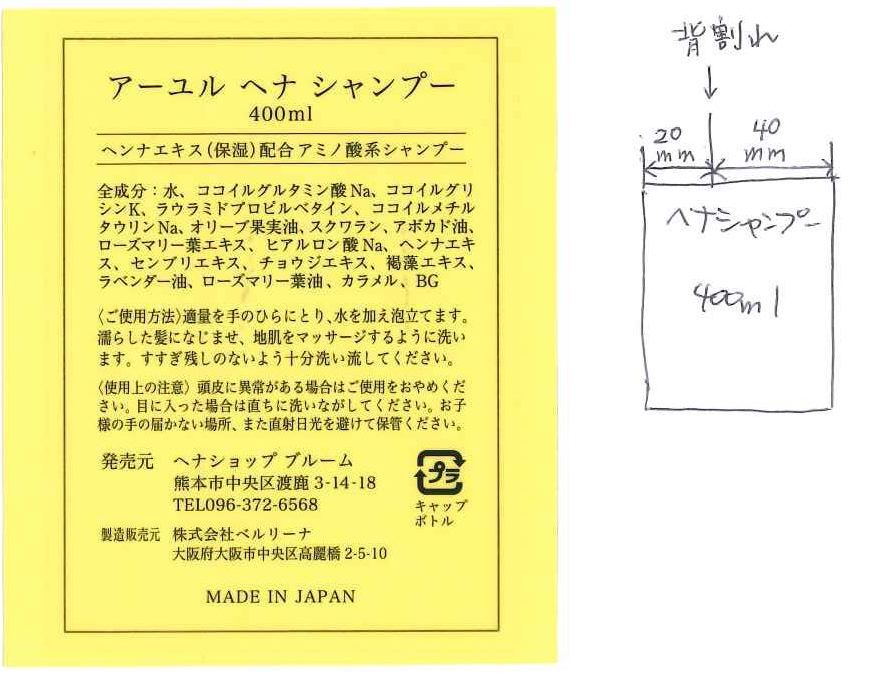 アーユル ヘナ シャンプー
400ml
ヘンナエキス(保湿)配合アミノ酸系シャンプー
全成分：水、ココイルグルタミン酸Na、ココイルグリ
シンK、ラウラミドプロピルベタイン、ココイルメチル
タウリンNa、オリーブ果実油、スクワラン、アボカド油、
ローズマリー葉エキス、ヒアルロン酸Na、ヘンナエキ
ス、センブリエキス、チョウジエキス、褐藻エキス、
ラベンダー油、ローズマリー葉油、カラメル、BG
〈ご使用方法〉適量を手のひらにとり、水を加え泡立てます。
濡らした髪になじませ、地肌をマッサージするように洗い
ます。すすぎ残しのないよう十分洗い流してください。
〈使用上の注意〉頭皮に異常がある場合はご使用をおやめくだ
さい。目に入った場合は直ちに洗いながしてください。お子
様の手の届かない場所、また直射日光を避けて保管ください。
発売元 ヘナショップ ブルーム
熊本市中央区渡鹿 3-14-18
TEL096-372-6568
プラ
キャップ
ボトル
製造販売元 株式会社ベルリーナ
大阪府大阪市中央区高麗橋 2-5-10
MADE IN JAPAN
背割れ
20 40
mm mm
ヘナシャンプー
400ml